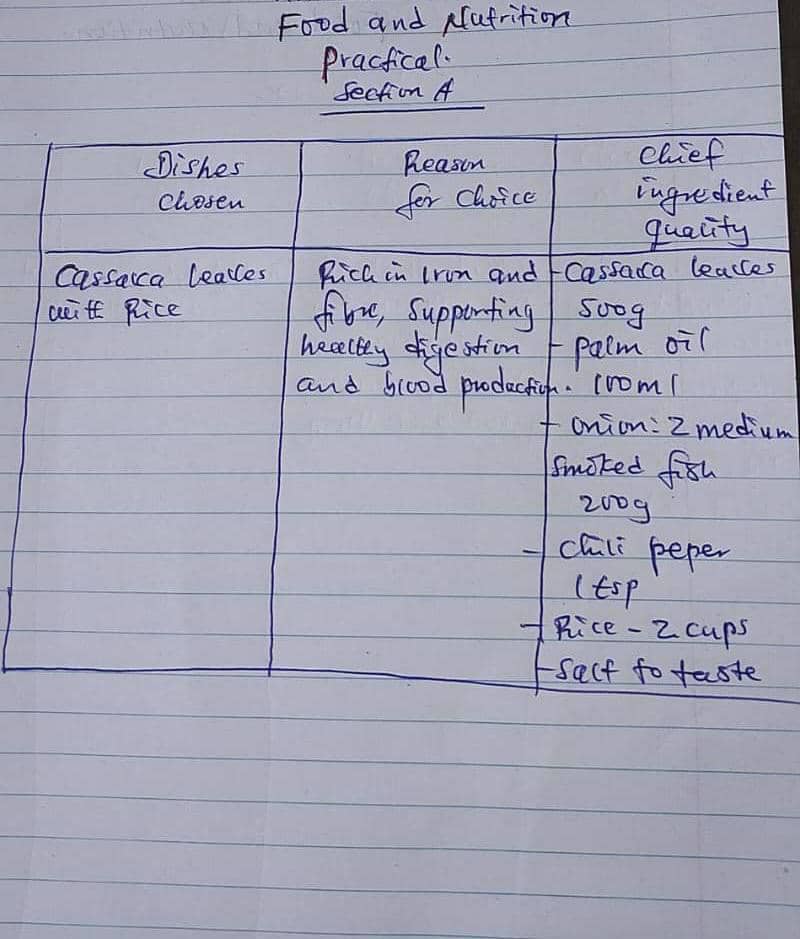 Food and Nutrition
Practical.
Section A
Dishes
Chosen
Reason
for Choice
Chief
ingredient
quality
Cassava leaves
with Rice
Rich in Iron and
fibre, Supporting
healthy digestion
and blood production.
- Cassava leaves
500g
- palm oil
100ml
- onion: 2 medium
Smoked fish
200g
- chili peper
1 tsp
- Rice - 2 cups
- Salt to taste